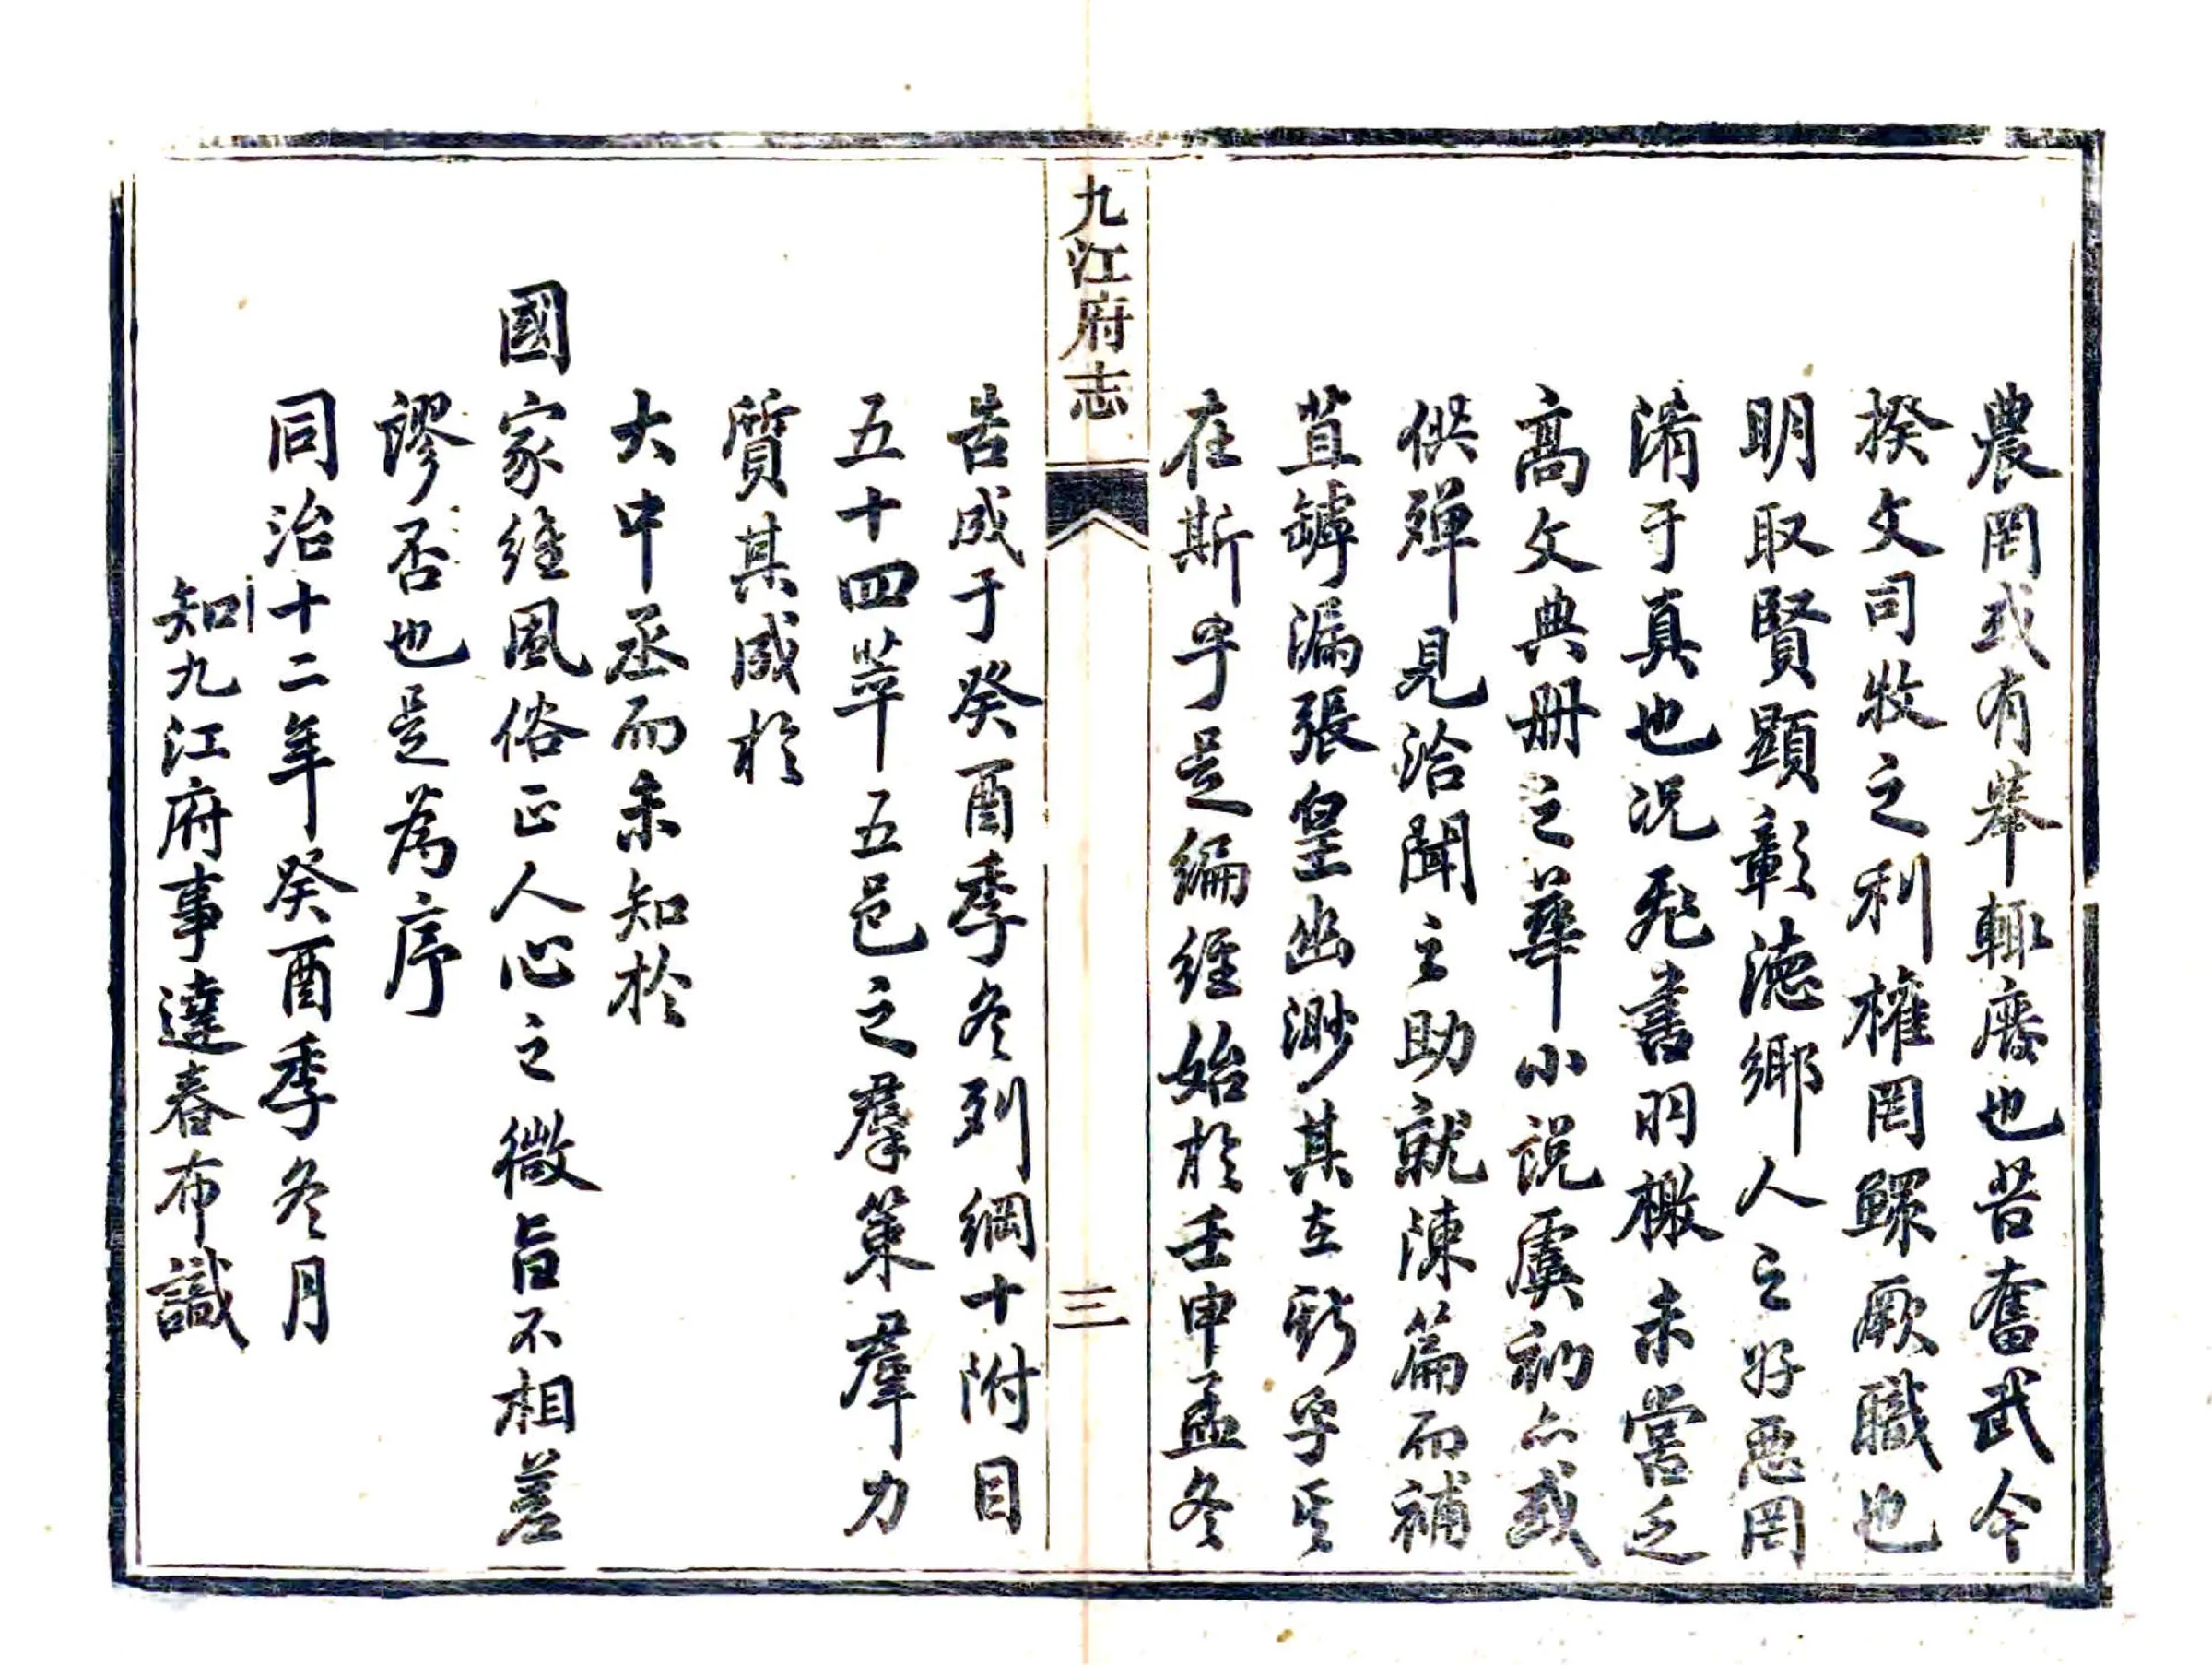 農罔或有舉輒廢也昔奮武今
揆文司牧之利權罔鰥厥職也
明取賢顯彰德鄉人之好惡罔
淆于真也況飛書羽檄未嘗乏
高文典册之華小說虞初亦或
供殫見洽聞之助就陳篇而補
苴罅漏張皇幽渺其在斯乎其
在斯乎是編經始於壬申孟冬
九江府志
三
告成于癸酉季冬列綱十附目
五十四萃五邑之羣策羣力
質其成於
大中丞而未知於
國家維風俗正人心之微旨不相差
謬否也是為序
同治十二年癸酉季冬月
知九江府事達春布識